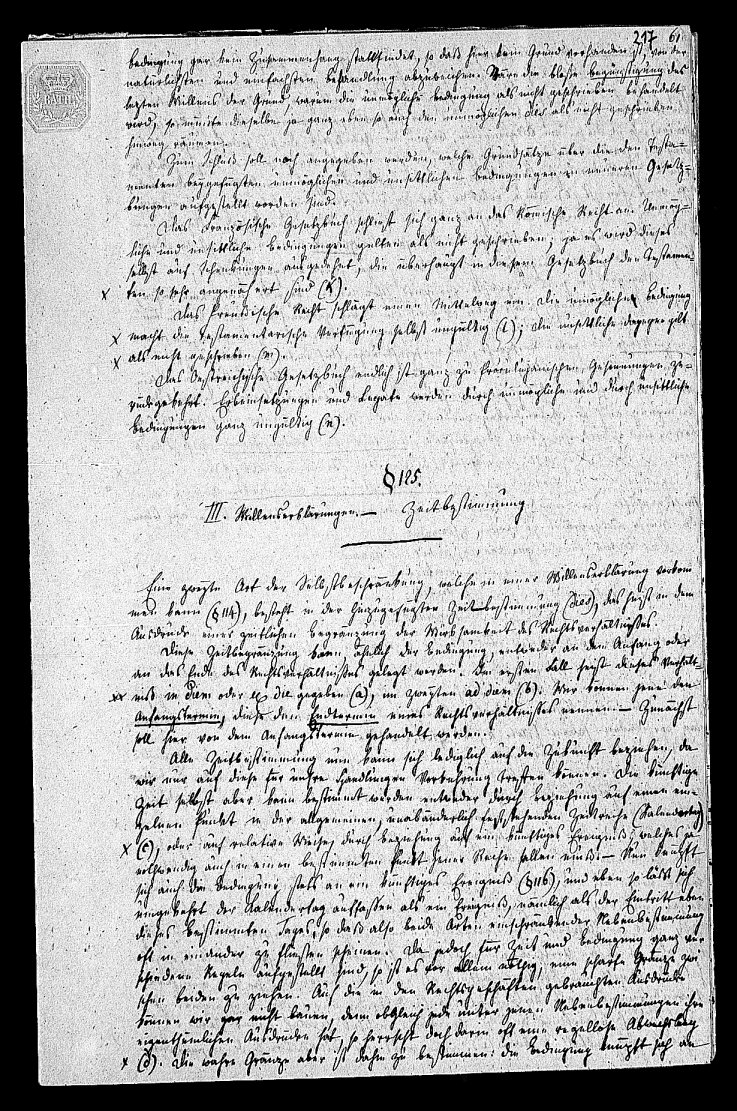 217 61
bedingung gar kein Zusammenhang stattfindet, so daß hier kein Grund vorhanden ist, von der
natürlichsten und einfachsten Behandlung abzuweichen. Wäre die bloße Begünstigung des
letzten Willens der Grund, warum die unmögliche Bedingung als nicht geschrieben behandelt
wird, so müßte dieselbe ja ganz eben so auch den unmöglichen dies als nicht geschrieben
hinweg räumen.
Zum Schluß soll noch angegeben werden, welche Grundsätze über die den Testa=
menten beygefügten unmöglichen und unsittlichen Bedingungen in neueren Gesetz=
büchern aufgestellt worden sind.
Das Französische Gesetzbuch schließt sich ganz an das Römische Recht an. Unmög=
liche und unsittliche Bedingungen gelten als nicht geschrieben; ja es wird dieses
selbst auf Schenkungen ausgedehnt, die überhaupt in diesem Gesetzbuch den Testamen=
x ten so sehr angenähert sind (k).
Das Preußische Recht schlägt einen Mittelweg ein. Die unmögliche Bedingung
x macht die testamentarische Verfügung selbst ungültig (l); die unsittliche dagegen gilt
x als nicht geschrieben (m).
Das Oestreichische Gesetzbuch endlich ist ganz zu Proculejanischen Gesinnungen zu=
rückgekehrt. Erbeinsetzungen und Legate werden durch unmögliche und durch unsittliche
Bedingungen ganz ungültig (n).
§ 125.
III. Willenserklärungen. — Zeitbestimmung
Eine zweyte Art der Selbstbeschränkung, welche in einer Willenserklärung vorkom
men kann (§ 114), besteht in der hinzugefügten Zeitbestimmung (dies), das heißt in dem
Ausdruck einer zeitlichen Begränzung der Wirksamkeit des Rechtsverhältnisses.
Diese Zeitbegränzung kann, ähnlich der Bedingung, entweder an den Anfang oder
an das Ende des Rechtsverhältnisses gelegt werden. Im ersten Fall heißt dieses Verhält=
xx niß in diem oder ex die gegeben (a), im zweyten ad diem (b). Wir können jene den
Anfangstermin, diese den Endtermin eines Rechtsverhältnisses nennen. — Zunächst
soll hier von dem Anfangstermin gehandelt werden.
Alle Zeitbestimmung nun kann sich lediglich auf die Zukunft beziehen, da
wir nur auf diese für unsre Handlungen Vorkehrung treffen können. Die künftige
Zeit selbst aber kann bestimmt werden entweder durch Beziehung auf einen ein=
zelnen Punkt in der allgemeinen, unabänderlich feststehenden Zeitreihe (Kalendertag)
x (c), oder auf relative Weise, durch Beziehung auf ein künftiges Ereigniß, welches ja
nothwendig auch in einen bestimmten Punkt jener Reihe fallen muß. — Nun knüpft
sich auch die Bedingung stets an ein künftiges Ereigniß (§ 116), und eben so läßt sich
umgekehrt der Kalendertag auffassen als ein Ereigniß, nämlich als der Eintritt eben
dieses bestimmten Tages, so daß also beide Arten einschränkender Nebenbestimmung
oft in einander zu fließen scheinen. Da jedoch für Zeit und Bedingung ganz ver
schiedene Regeln aufgestellt sind, so ist es vor Allem nöthig, eine scharfe Gränze zwi
schen beiden zu ziehen. Auf die in den Rechtsgeschäften gebrauchten Ausdrücke
können wir gar nicht bauen, denn obgleich jede unter jenen Nebenbestimmungen ihre
eigenthümlichen Ausdrücke hat, so herrscht doch darin oft eine regellose Abwechslung
x (d). Die wahre Gränze aber ist dahin zu bestimmen: die Bedingung knüpft sich an